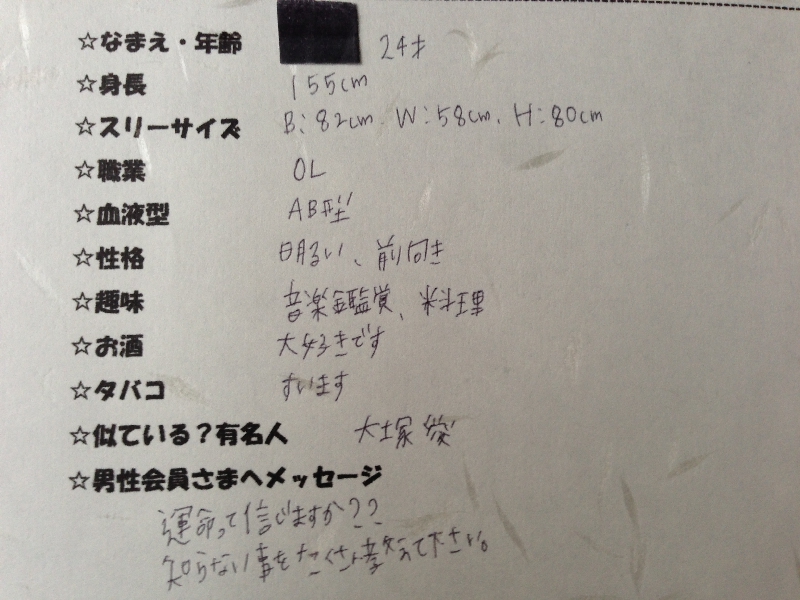 ☆なまえ・年齢 24才
☆身長 155cm
☆スリーサイズ B:82cm. W:58cm. H:80cm
☆職業 OL
☆血液型 AB型
☆性格 明るい、前向き
☆趣味 音楽鑑賞、料理
☆お酒 大好きです
☆タバコ すいます
☆似ている?有名人 大塚愛
☆男性会員さまへメッセージ
運命って信じますか??
知らない事をたくさん教えて下さい。